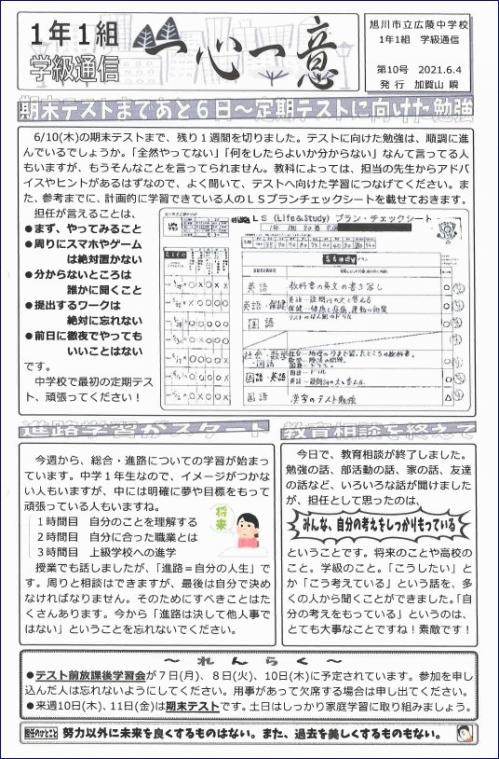 1年1組
学級通信
一心一意
旭川市立広陵中学校
1年1組 学級通信
第10号 2021.6.4
発行 加賀山 瞬
期末テストまであと6日～定期テストに向けた勉強
6/10(木)の期末テストまで、残り1週間を切りました。テストに向けた勉強は、順調に進
んでいるでしょうか。「全然やってない」「何をしたらよいか分からない」なんて言ってる人
もいますが、もうそんなことを言ってられません。教科によっては、担当の先生からアドバ
イスやヒントがあるはずなので、よく聞いて、テストへ向けた学習につなげてください。ま
た、参考までに、計画的に学習できている人のLSプランチェックシートを載せておきます。
担任が言えることは、
●まず、やってみること
●周りにスマホやゲーム
は絶対置かない
●分からないところは
誰かに聞くこと
●提出するワークは
絶対に忘れない
●前日に徹夜でやっても
いいことはない
です。
中学校で最初の定期テス
ト、頑張ってください！
LS (Life&Study) プラン・チェックシート
英語 教科書の英文の書き写し
英語・保健
国語
社会・数学
国語
国語・英語
国語 漢字のテスト勉強
進路学習がスタート
今週から、総合・進路についての学習が始まっ
ています。中学1年生なので、イメージがつかな
い人もいますが、中には明確に夢や目標をもって
頑張っている人もいますね。
1時間目 自分のことを理解する
2時間目 自分に合った職業とは
3時間目 上級学校への進学
将来
授業でも話しましたが、「進路＝自分の人生」で
す。周りと相談はできますが、最後は自分で決め
なければなりません。そのためにすべきことはた
くさんあります。今から「進路は決して他人事で
はない」ということを忘れないでください。
教育相談を終えて
今日で、教育相談が終了しました。
勉強の話、部活動の話、家の話、友達
の話など、いろいろな話が聞けました
が、担任として思ったのは、
みんな、自分の考えをしっかりもっている
ということです。将来のことや高校の
こと。学級のこと。「こうしたい」と
か「こう考えている」という話を、多
くの人から聞くことができました。「自
分の考えをもっている」というのは、
とても大事なことですね！素敵です！
～ れんらく ～
●テスト前放課後学習会が7日(月)、8日(火)、10日(木)に予定されています。参加を申し
込んだ人は忘れないようにしてください。用事があって欠席する場合は申し出てください。
●来週10日(木)、11日(金)は期末テストです。土日はしっかり家庭学習に取り組みましょう。
担任のひとこと 努力以外に未来を良くするものはない。また、過去を美しくするものもない。